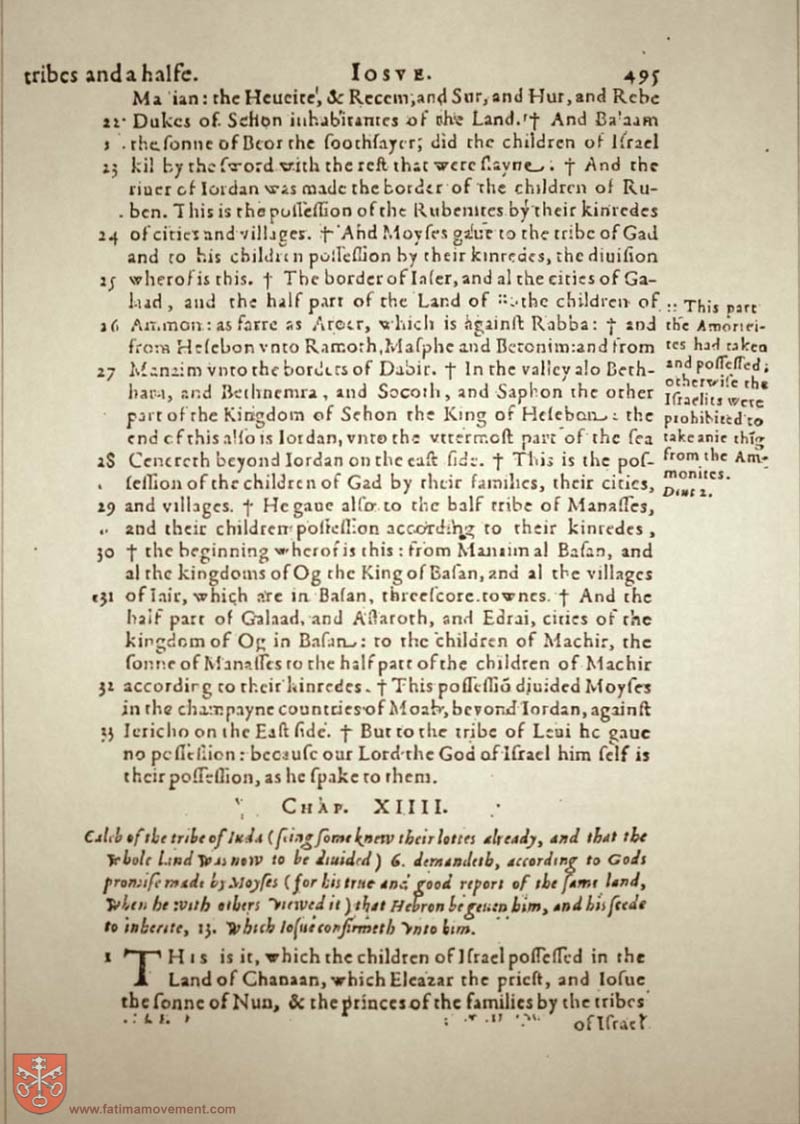 tribes and a halfe. IOSVE. 495
Ma ian: the Heueite, & Recem, and Sur, and Hur, and Rebe
22 Dukes of Sehon inhabitantes of the Land. † And Balaam
the sonne of Beor the soothsayer, did the children of Israel
23 kil by the sword with the rest that were slayne. † And the
riuer of Iordan was made the border of the children of Ru-
ben. This is the possession of the Rubenites by their kinredes
24 of cities and villages. † And Moyses gaue to the tribe of Gad
and to his children possession by their kinredes, the diuision
25 wherof is this. † The border of Iaser, and al the cities of Ga-
laad, and the half part of the Land of :: the children of
26 Ammon: as farre as Aroer, which is against Rabba: † and
from Hesebon vnto Ramoth, Masphe and Betonim: and from
27 Manaim vnto the borders of Dabir. † In the valley also Beth-
haran, and Bethnemra, and Socoth, and Saphon the other
part of the Kingdom of Sehon the King of Hesebon: the
end of this also is Iordan, vnto the vttermost part of the sea
28 Cenereth beyond Iordan on the east side. † This is the pos-
session of the children of Gad by their families, their cities,
29 and villages. † He gaue also to the half tribe of Manasses,
and their children possession according to their kinredes,
30 † the beginning wherof is this: from Manaim al Basan, and
al the kingdoms of Og the King of Basan, and al the villages
31 of Iair, which are in Basan, threescore townes. † And the
half part of Galaad, and Astaroth, and Edrai, cities of the
kingdom of Og in Basan: to the children of Machir, the
sonne of Manasses to the half part of the children of Machir
32 according to their kinredes. † This possessiō diuided Moyses
in the champayne countries of Moab, beyond Iordan, against
33 Iericho on the East side. † But to the tribe of Leui he gaue
no possession: because our Lord the God of Israel him self is
their possession, as he spake to them.
:: This part
the Amorrei-
tes had taken
and possessed;
otherwise the
Israelits were
prohibited to
take anie thīg
from the Am-
monites.
Deut 2.
CHAP. XIIII.
Caleb of the tribe of Iuda (seing some knew their lottes already, and that the
whole land was now to be diuided) 6. demandeth, according to Gods
promise made by Moyses (for his true and good report of the same land,
when he with others viewed it) that Hebron be geuen him, and his seede
to inherite, 13. which Iosue confirmeth vnto him.
1 THIS is it, which the children of Israel possessed in the
Land of Chanaan, which Eleazar the priest, and Iosue
the sonne of Nun, & the princes of the families by the tribes
of Israel
www.fatimamovement.com